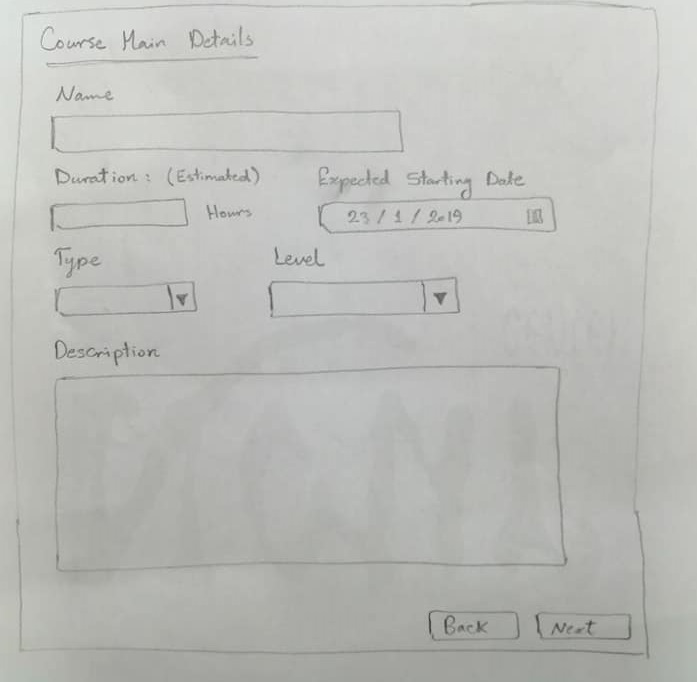 Course Main Details
Name
Duration : (Estimated) Expected Starting Date
Hours 23 / 1 / 2019
Type Level
Description
Back Next